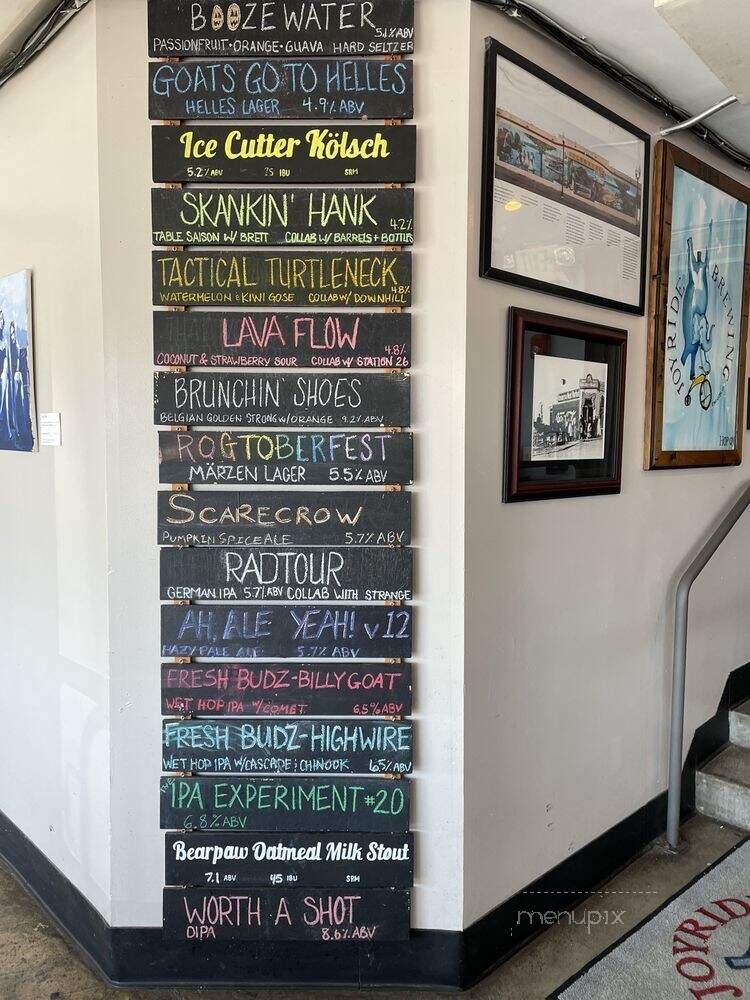 BOOZE WATER
5.1% ABV
PASSIONFRUIT•ORANGE•GUAVA HARD SELTZER
GOATS GO TO HELLES
HELLES LAGER 4.9% ABV
Ice Cutter Kölsch
5.2% ABV 25 IBU SRM
SKANKIN' HANK
4.2%
TABLE SAISON W/ BRETT COLLAB W/ BARRELS + BOTTLES
TACTICAL TURTLENECK
4.8%
WATERMELON & KIWI GOSE COLLAB W/ DOWNHILL
LAVA FLOW
4.8%
COCONUT & STRAWBERRY SOUR COLLAB W/ STATION 26
BRUNCHIN' SHOES
BELGIAN GOLDEN STRONG W/ ORANGE 9.2% ABV
ROGTOBERFEST
MÄRZEN LAGER 5.5% ABV
SCARECROW
PUMPKIN SPICE ALE 5.7% ABV
RADTOUR
GERMAN IPA 5.7% ABV COLLAB WITH STRANGE
AH, ALE YEAH! v 12
HAZY PALE ALE 5.7% ABV
FRESH BUDZ-BILLYGOAT
WET HOP IPA W/ COMET 6.5% ABV
FRESH BUDZ-HIGHWIRE
WET HOP IPA W/ CASCADE & CHINOOK 6.5% ABV
IPA EXPERIMENT #20
6.8% ABV
Bearpaw Oatmeal Milk Stout
7.1 ABV 45 IBU SRM
WORTH A SHOT
DIPA 8.6% ABV
JOYRIDE BREWING
menupix
JOYRID